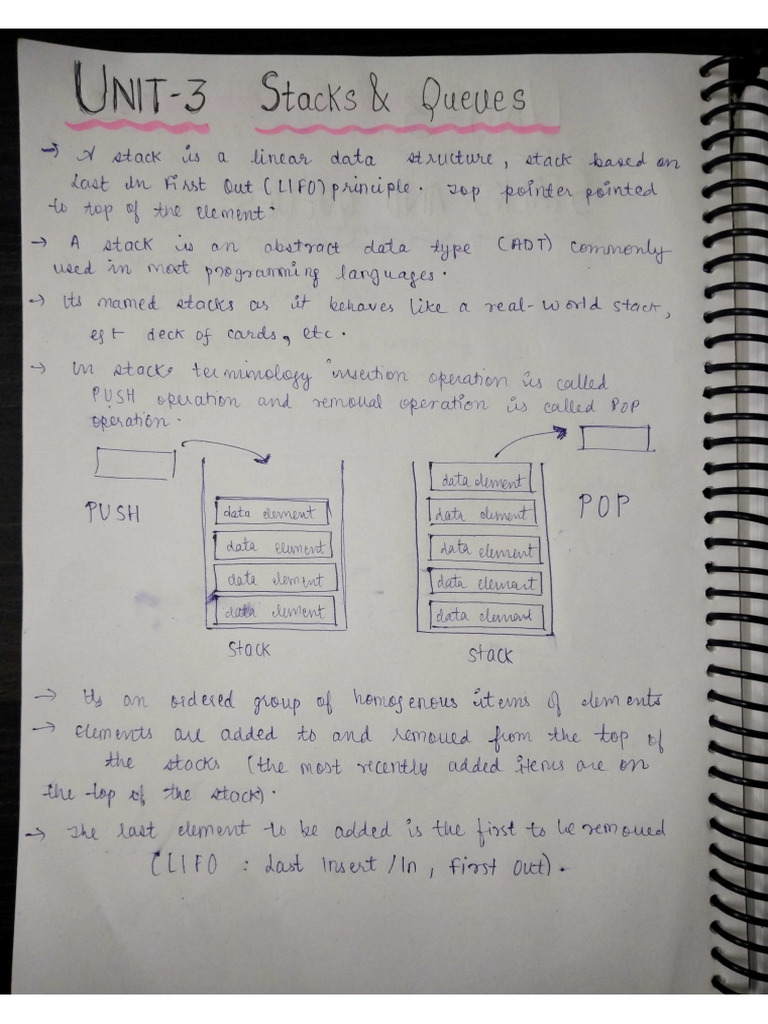 UNIT-3 Stacks & Queues
→ A stack is a linear data structure, stack based on
Last In First Out (LIFO) principle. Top pointer pointed
to top of the element.
→ A stack is an abstract data type (ADT) commonly
used in most programming languages.
→ Its named stacks as it behaves like a real-world stack,
eg:- deck of cards, etc.
→ In stack terminology insertion operation is called
PUSH operation and removal operation is called POP
operation.
PUSH
data element
data element
data element
data element
Stack
data element
data element
data element
data element
data element
Stack
POP
→ Its an ordered group of homogenous items of elements
→ Elements are added to and removed from the top of
the stacks (the most recently added items are on
the top of the stack).
→ The last element to be added is the first to be removed
(LIFO : Last Insert/In, First Out).